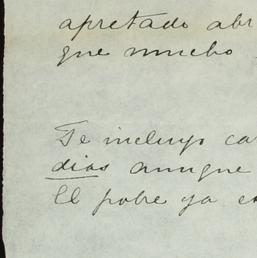 apretado abr
que mucho
Te incluyo ca
dias aunque
El pobre ya es